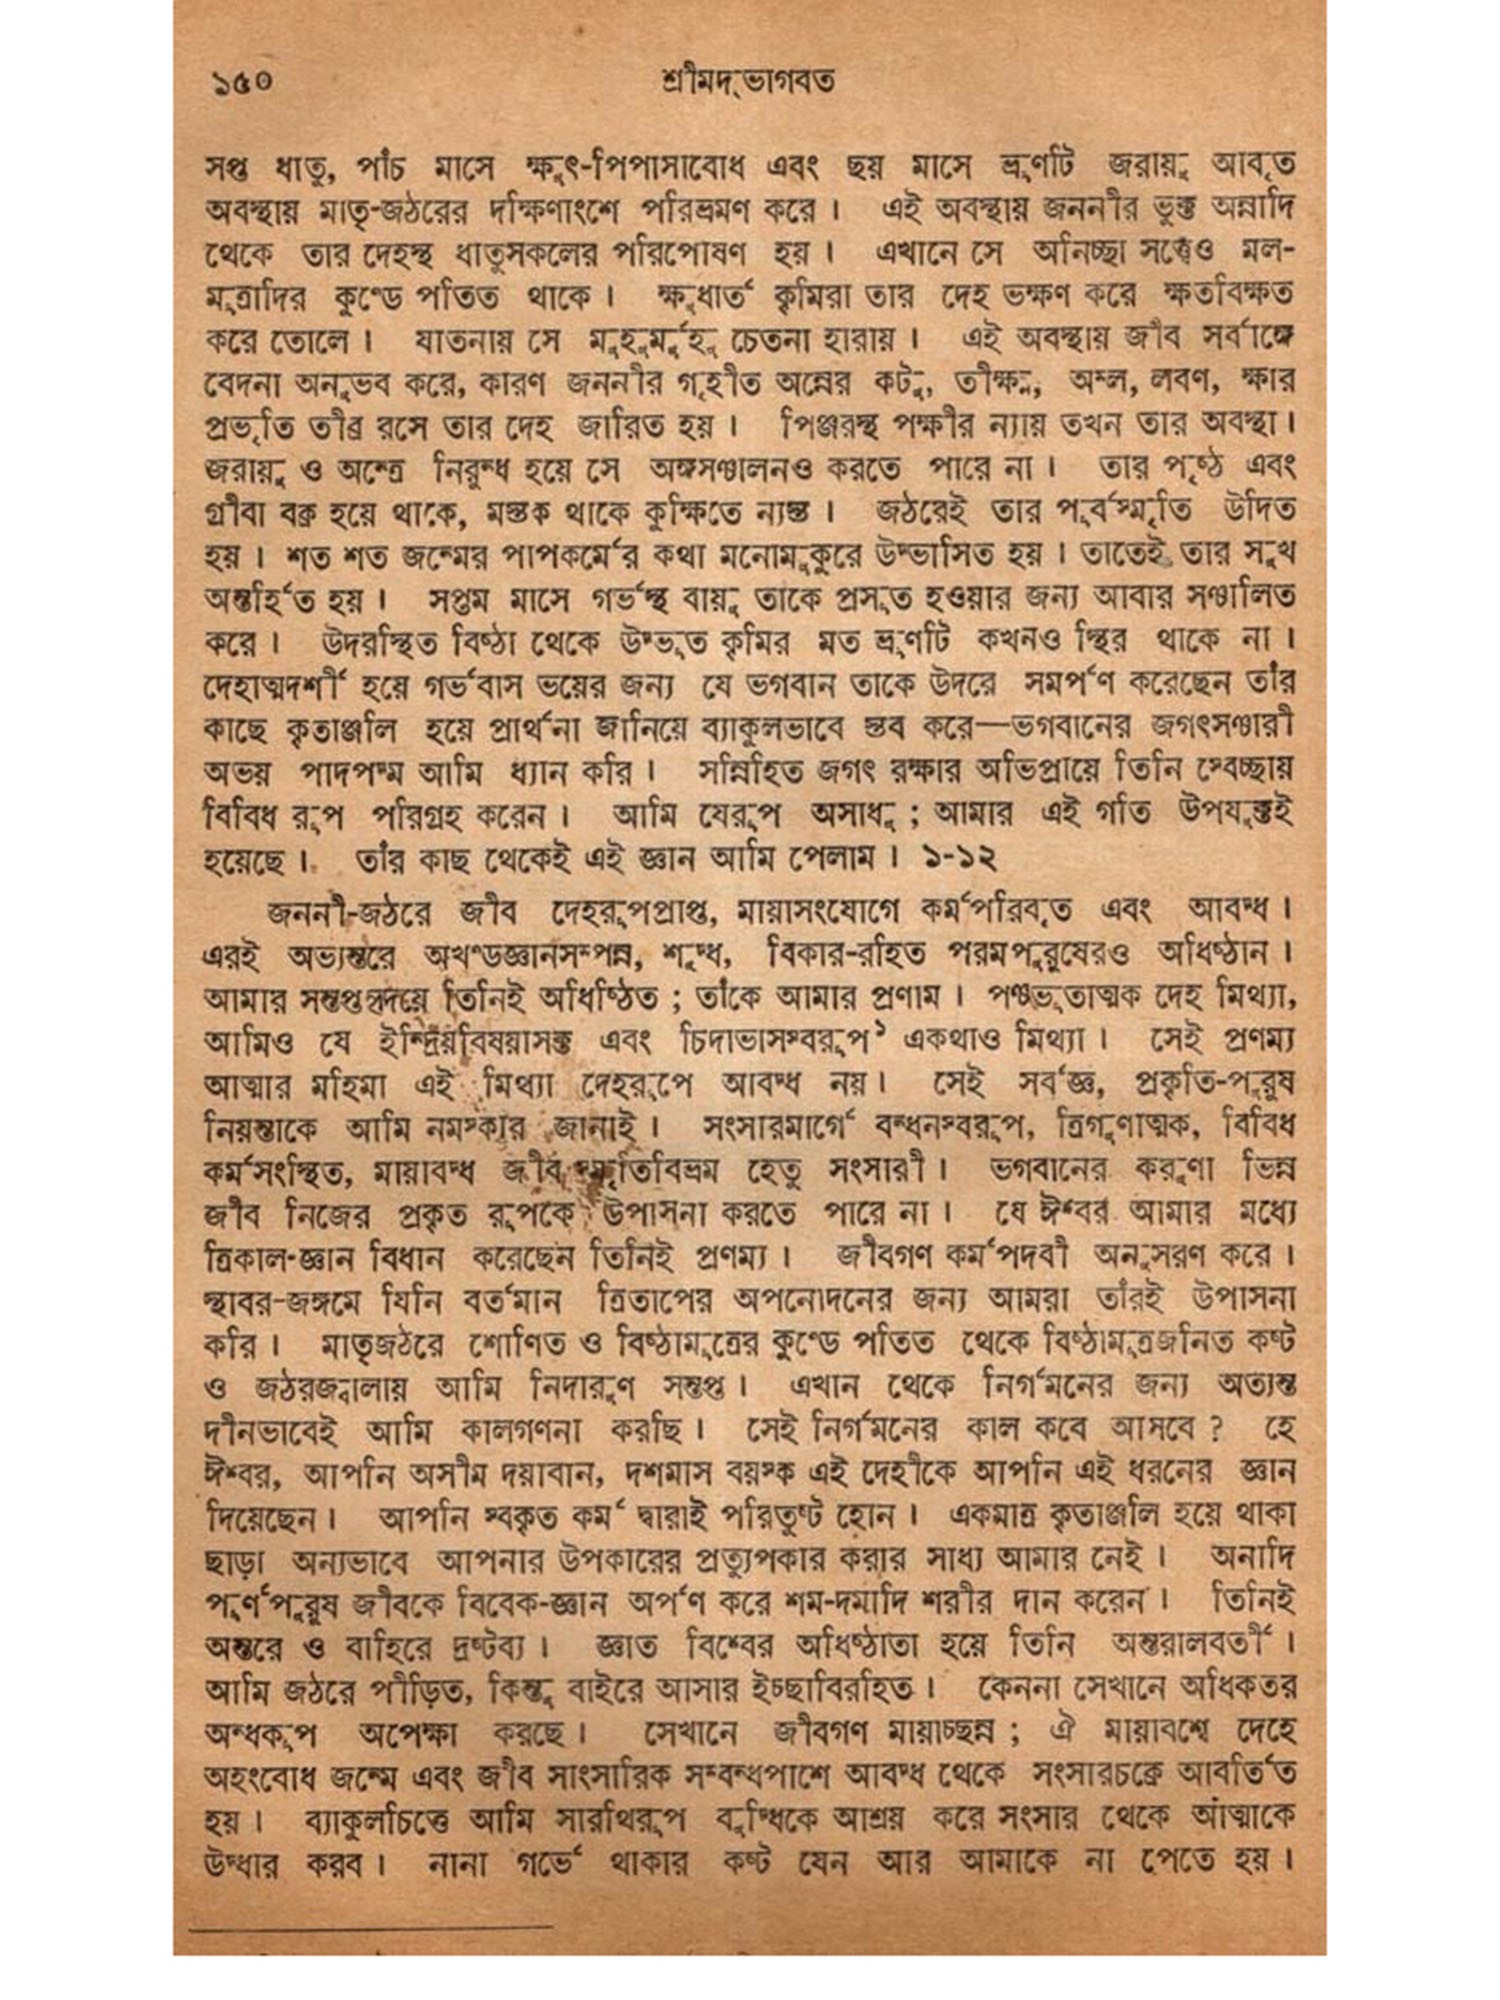 ১৫০ শ্রীমদ্ভাগবত
সপ্ত ধাতু, পাঁচ মাসে ক্ষুৎ-পিপাসাবোধ এবং ছয় মাসে ভ্রূণটি জরায়ু আবৃত
অবস্থায় মাতৃ-জঠরের দক্ষিণাংশে পরিভ্রমণ করে। এই অবস্থায় জননীর ভুক্ত অন্নাদি
থেকে তার দেহস্থ ধাতুসকলের পরিপোষণ হয়। এখানে সে অনিচ্ছা সত্ত্বেও মল-
মূত্রাদির কুণ্ডে পতিত থাকে। ক্ষুধার্ত কৃমিরা তার দেহ ভক্ষণ করে ক্ষতবিক্ষত
করে তোলে। যাতনায় সে মুহুর্মুহু চেতনা হারায়। এই অবস্থায় জীব সর্বাঙ্গে
বেদনা অনুভব করে, কারণ জননীর গৃহীত অন্নের কটু, তীক্ষ্ণ, অম্ল, লবণ, ক্ষার
প্রভৃতি তীব্র রসে তার দেহ জারিত হয়। পিঞ্জরস্থ পক্ষীর ন্যায় তখন তার অবস্থা।
জরায়ু ও অন্ত্রে নিরুদ্ধ হয়ে সে অঙ্গসঞ্চালনও করতে পারে না। তার পৃষ্ঠ এবং
গ্রীবা বক্র হয়ে থাকে, মস্তক থাকে কুক্ষিতে ন্যস্ত। জঠরেই তার পূর্বস্মৃতি উদিত
হয়। শত শত জন্মের পাপকর্মের কথা মনোমুকুরে উদ্ভাসিত হয়। তাতেই তার সুখ
অন্তর্হিত হয়। সপ্তম মাসে গর্ভস্থ বায়ু তাকে প্রসূত হওয়ার জন্য আবার সঞ্চালিত
করে। উদরস্থিত বিষ্ঠা থেকে উদ্ভূত কৃমির মত ভ্রূণটি কখনও স্থির থাকে না।
দেহাত্মদর্শী হয়ে গর্ভবাস ভয়ের জন্য যে ভগবান তাকে উদরে সমর্পণ করেছেন তাঁর
কাছে কৃতাঞ্জলি হয়ে প্রার্থনা জানিয়ে ব্যাকুলভাবে স্তব করে—ভগবানের জগৎসঞ্চারী
অভয় পাদপদ্ম আমি ধ্যান করি। সন্নিহিত জগৎ রক্ষার অভিপ্রায়ে তিনি স্বেচ্ছায়
বিবিধ রূপ পরিগ্রহ করেন। আমি যেরূপ অসাধু; আমার এই গতি উপযুক্তই
হয়েছে। তাঁর কাছ থেকেই এই জ্ঞান আমি পেলাম। ১-১২
জননী-জঠরে জীব দেহরূপপ্রাপ্ত, মায়াসংযোগে কর্মপরিবৃত এবং আবদ্ধ।
এরই অভ্যন্তরে অখণ্ডজ্ঞানসম্পন্ন, শুদ্ধ, বিকার-রহিত পরমপুরুষেরও অধিষ্ঠান।
আমার সন্তপ্তহৃদয়ে তিনিই অধিষ্ঠিত; তাঁকে আমার প্রণাম। পঞ্চভূতাত্মক দেহ মিথ্যা,
আমিও যে ইন্দ্রিয়বিষয়াসক্ত এবং চিদাভাসস্বরূপ১ একথাও মিথ্যা। সেই প্রণম্য
আত্মার মহিমা এই মিথ্যা দেহরূপে আবদ্ধ নয়। সেই সর্বজ্ঞ, প্রকৃতি-পুরুষ
নিয়ন্তাকে আমি নমস্কার জানাই। সংসারমার্গে বন্ধনস্বরূপ, ত্রিগুণাত্মক, বিবিধ
কর্মসংস্থিত, মায়াবদ্ধ জীব স্মৃতিবিভ্রম হেতু সংসারী। ভগবানের করুণা ভিন্ন
জীব নিজের প্রকৃত রূপকে উপাসনা করতে পারে না। যে ঈশ্বর আমার মধ্যে
ত্রিকাল-জ্ঞান বিধান করেছেন তিনিই প্রণম্য। জীবগণ কর্মপদবী অনুসরণ করে।
স্থাবর-জঙ্গমে যিনি বর্তমান ত্রিতাপের অপনোদনের জন্য আমরা তাঁরই উপাসনা
করি। মাতৃজঠরে শোণিত ও বিষ্ঠামূত্রের কুণ্ডে পতিত থেকে বিষ্ঠামূত্রজনিত কষ্ট
ও জঠরজ্বালায় আমি নিদারুণ সন্তপ্ত। এখান থেকে নির্গমনের জন্য অত্যন্ত
দীনভাবেই আমি কালগণনা করছি। সেই নির্গমনের কাল কবে আসবে? হে
ঈশ্বর, আপনি অসীম দয়াবান, দশমাস বয়স্ক এই দেহীকে আপনি এই ধরনের জ্ঞান
দিয়েছেন। আপনি স্বকৃত কর্ম দ্বারাই পরিতুষ্ট হোন। একমাত্র কৃতাঞ্জলি হয়ে থাকা
ছাড়া অন্যভাবে আপনার উপকারের প্রত্যুপকার করার সাধ্য আমার নেই। অনাদি
পূর্ণপুরুষ জীবকে বিবেক-জ্ঞান অর্পণ করে শম-দমাদি শরীর দান করেন। তিনিই
অন্তরে ও বাহিরে দ্রষ্টব্য। জ্ঞাত বিশ্বের অধিষ্ঠাতা হয়ে তিনি অন্তরালবর্তী।
আমি জঠরে পীড়িত, কিন্তু বাইরে আসার ইচ্ছাবিরহিত। কেননা সেখানে অধিকতর
অন্ধকূপ অপেক্ষা করছে। সেখানে জীবগণ মায়াচ্ছন্ন; ঐ মায়াবশ্বে দেহে
অহংবোধ জন্মে এবং জীব সাংসারিক সম্বন্ধপাশে আবদ্ধ থেকে সংসারচক্রে আবর্তিত
হয়। ব্যাকুলচিত্তে আমি সারথিরূপ বুদ্ধিকে আশ্রয় করে সংসার থেকে আত্মাকে
উদ্ধার করব। নানা গর্ভে থাকার কষ্ট যেন আর আমাকে না পেতে হয়।